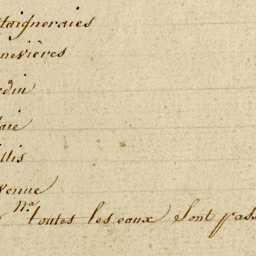 taigneraies
nevières
rdin
aie
illis
venue
N.ª toutes les eaux sont pass